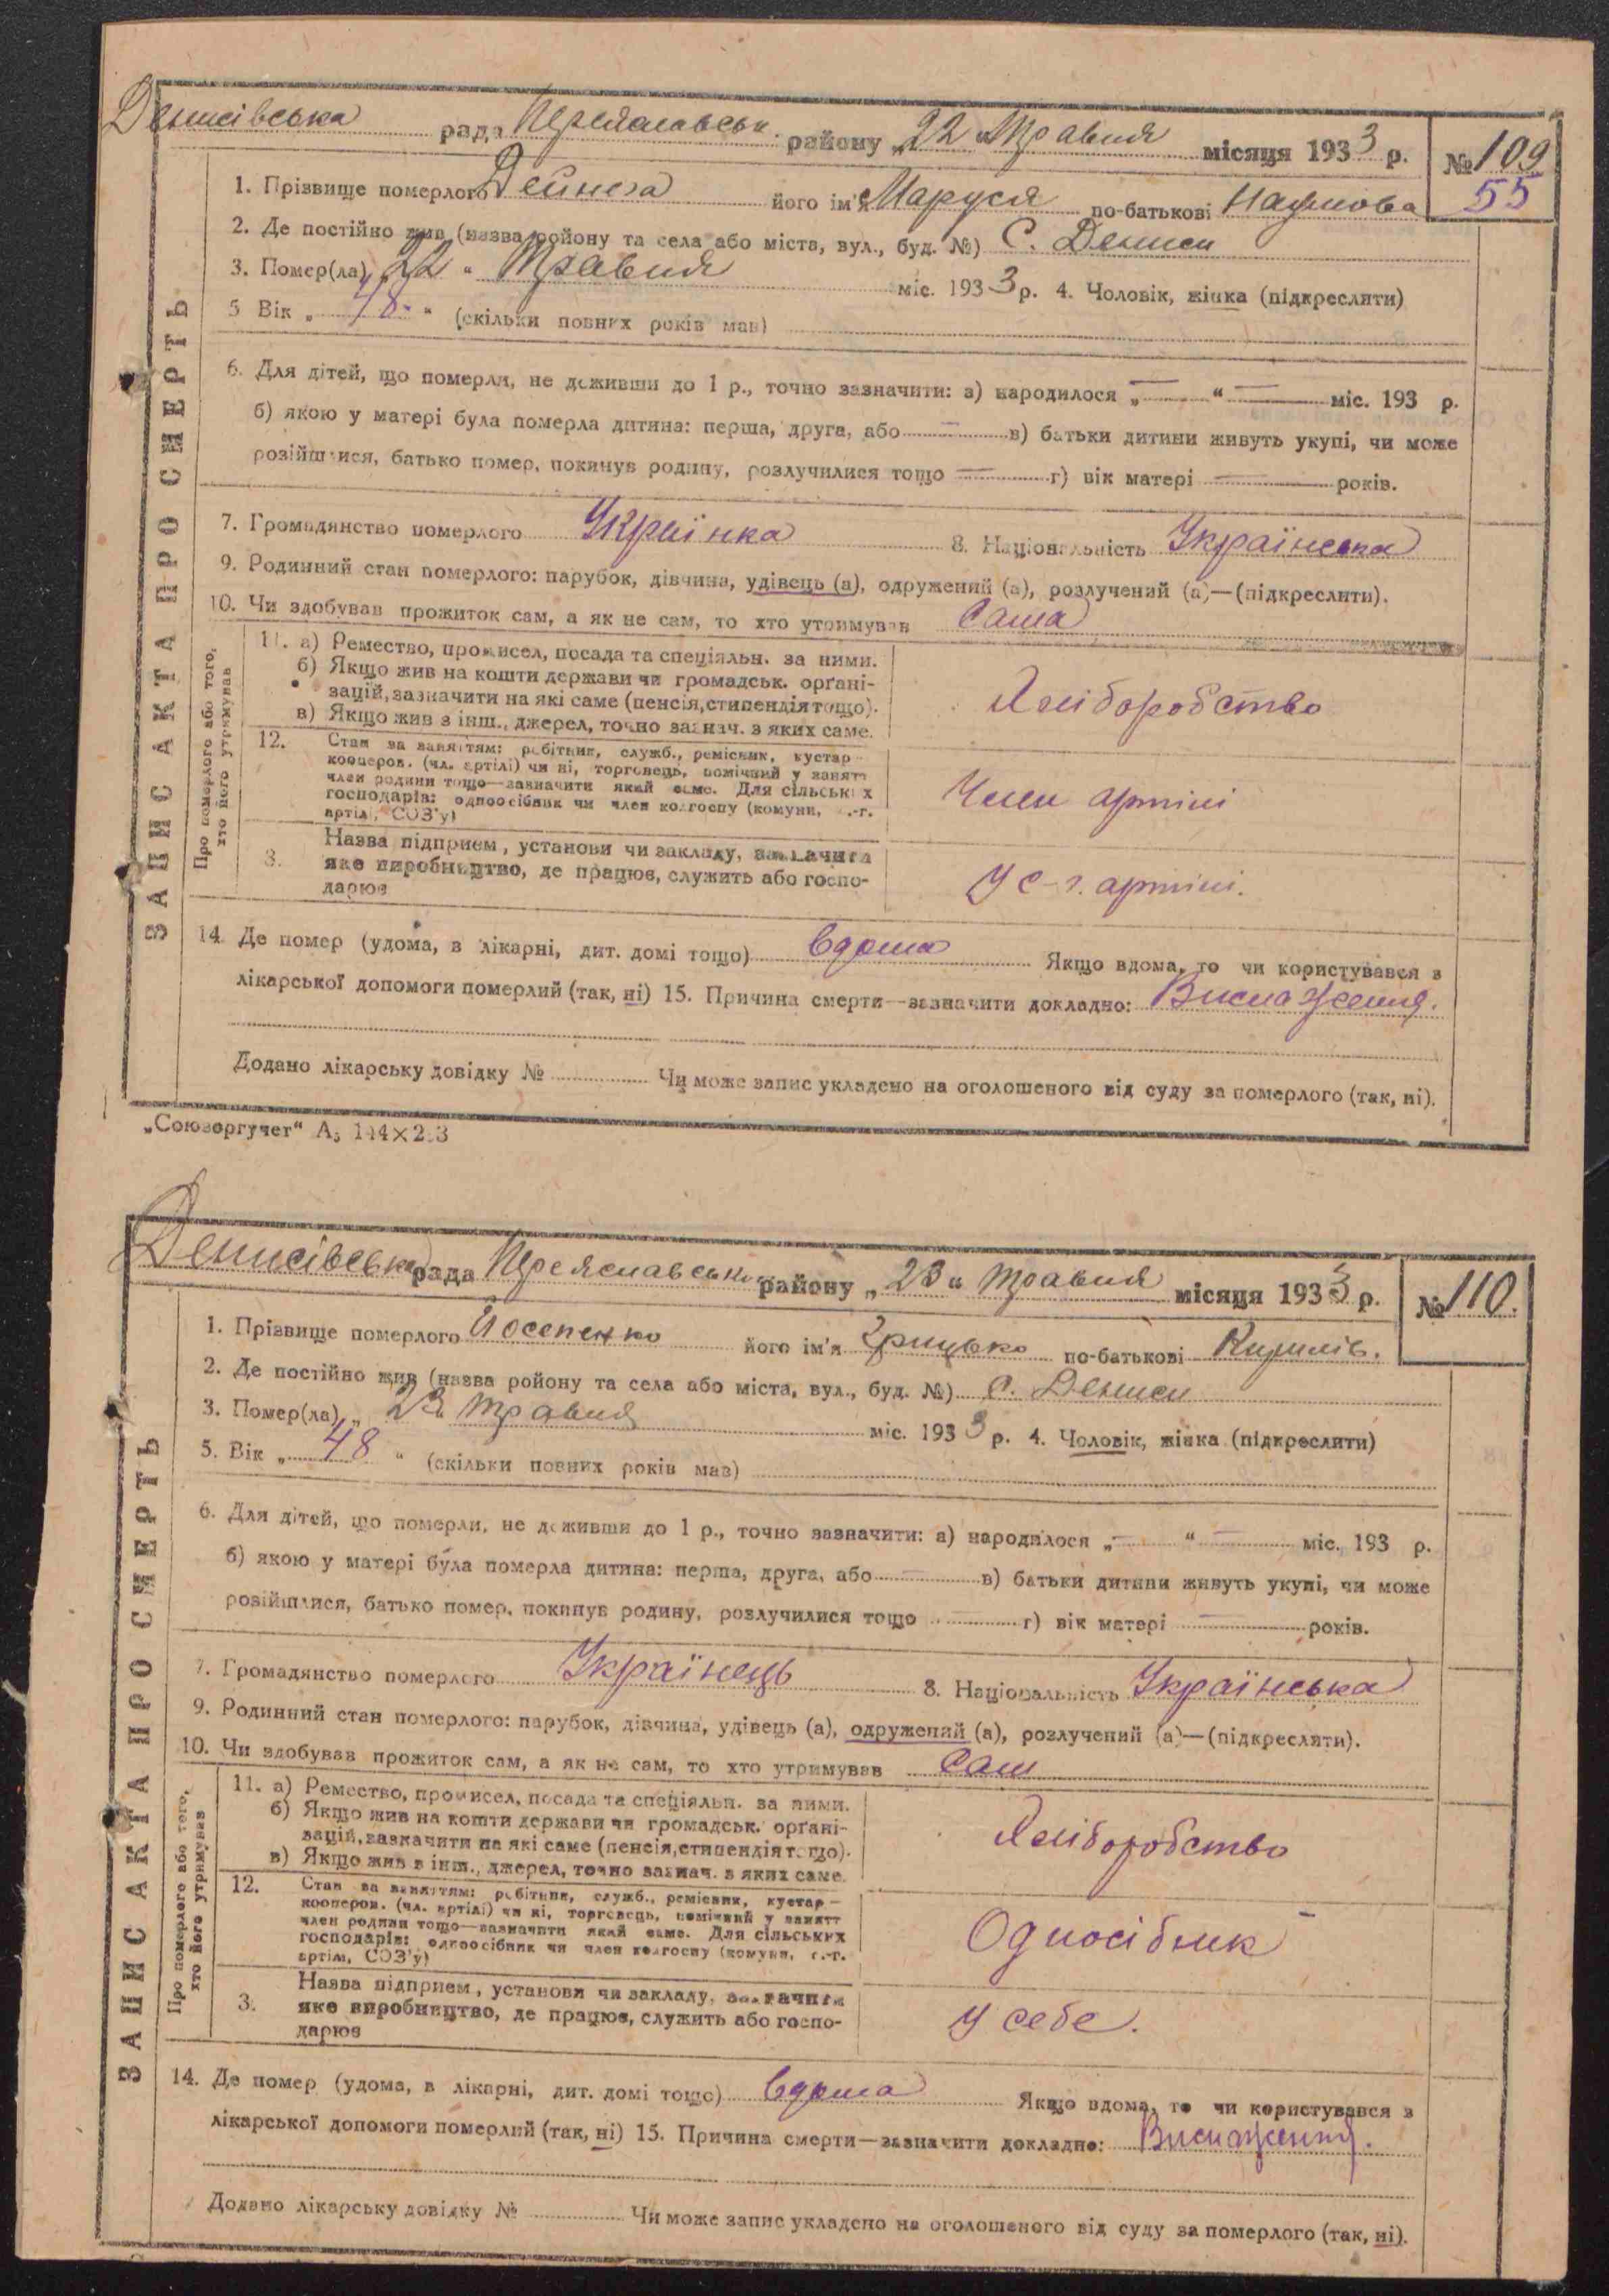 Денисівська рада Переяславськ. району „22 Травня місяця 1933 р. № 109
55
1. Прізвище померлого Дейнега його ім'я Маруся по-батькові Наумова
2. Де постійно жив (назва ройону та села або міста, вул., буд. №) С. Дениси
3. Помер(ла) „22“ Травня міс. 1933 р. 4. Чоловік, жінка (підкреслити)
5 Вік „48“ (скільки повних років мав)
6. Для дітей, що померли, не доживши до 1 р., точно зазначити: а) народилося „—“ — міс. 193 р.
б) якою у матері була померла дитина: перша, друга, або — в) батьки дитини живуть укупі, чи може
розійшлися, батько помер, покинув родину, розлучилися тощо — г) вік матері — років.
7. Громадянство померлого Українка 8. Національність Українська
9. Родинний стан померлого: парубок, дівчина, удівець (а), одружений (а), розлучений (а)—(підкреслити).
10. Чи здобував прожиток сам, а як не сам, то хто утримував Сама
ЗАПИС АКТА ПРО СМЕРТЬ
Про померлого або того, хто його утримував
11. а) Ремество, промисел, посада та спеціяльн. за ними.
б) Якщо жив на кошти держави чи громадськ. орґані-
зацій, зазначити на які саме (пенсія, стипендія тощо).
в) Якщо жив з інш., джерел, точно зазнач. з яких саме.
Хліборобство
12. Стан за заняттям: робітник, служб., ремісник, кустар—
кооперов. (чл. артілі) чи ні, торговець, помічний у занятт
член родини тощо—зазначити який саме. Для сільських
господарів: одноосібник чи член колгоспу (комуни, с.-г.
артілі, СОЗ'у)
Член артілі
3. Назва підприєм, установи чи закладу, зазначити
яке виробництво, де працює, служить або госпо-
дарює
У с-г. артілі.
14. Де помер (удома, в лікарні, дит. домі тощо) вдома Якщо вдома, то чи користувався з
лікарської допомоги померлий (так, ні) 15. Причина смерти—зазначити докладно: Виснаження.
Додано лікарську довідку № Чи може запис укладено на оголошеного від суду за померлого (так, ні).
„Союзоргучет“ А5 144×203
Денисівська рада Переяславськ. району „23“ травня місяця 1933 р. № 110.
1. Прізвище померлого Йосепенко його ім'я Грицько по-батькові Кирилів.
2. Де постійно жив (назва ройону та села або міста, вул., буд. №) с. Дениси
3. Помер(ла) „23 травня міс. 1933 р. 4. Чоловік, жінка (підкреслити)
5. Вік „48“ (скільки повних років мав)
6. Для дітей, що померли, не доживши до 1 р., точно зазначити: а) народилося „—“ — міс. 193 р.
б) якою у матері була померла дитина: перша, друга, або — в) батьки дитини живуть укупі, чи може
розійшлися, батько помер, покинув родину, розлучилися тощо — г) вік матері — років.
7. Громадянство померлого Українець 8. Національність Українська
9. Родинний стан померлого: парубок, дівчина, удівець (а), одружений (а), розлучений (а)—(підкреслити).
10. Чи здобував прожиток сам, а як не сам, то хто утримував Сам
ЗАПИС АКТА ПРО СМЕРТЬ
Про померлого або того, хто його утримував
11. а) Ремество, промисел, посада та спеціяльн. за ними.
б) Якщо жив на кошти держави чи громадськ. орґані-
зацій, зазначити на які саме (пенсія, стипендія тощо).
в) Якщо жив з інш., джерел, точно зазнач. з яких саме.
Хліборобство
12. Стан за заняттям: робітник, служб., ремісник, кустар—
кооперов. (чл. артілі) чи ні, торговець, помічний у занятт
член родини тощо—зазначити який саме. Для сільських
господарів: одноосібник чи член колгоспу (комуни, с.-г.
артілі, СОЗ'у)
Односібник
3. Назва підприєм, установи чи закладу, зазначити
яке виробництво, де працює, служить або госпо-
дарює
У себе.
14. Де помер (удома, в лікарні, дит. домі тощо) вдома Якщо вдома, то чи користувався з
лікарської допомоги померлий (так, ні) 15. Причина смерти—зазначити докладно: Виснаження.
Додано лікарську довідку № Чи може запис укладено на оголошеного від суду за померлого (так, ні).